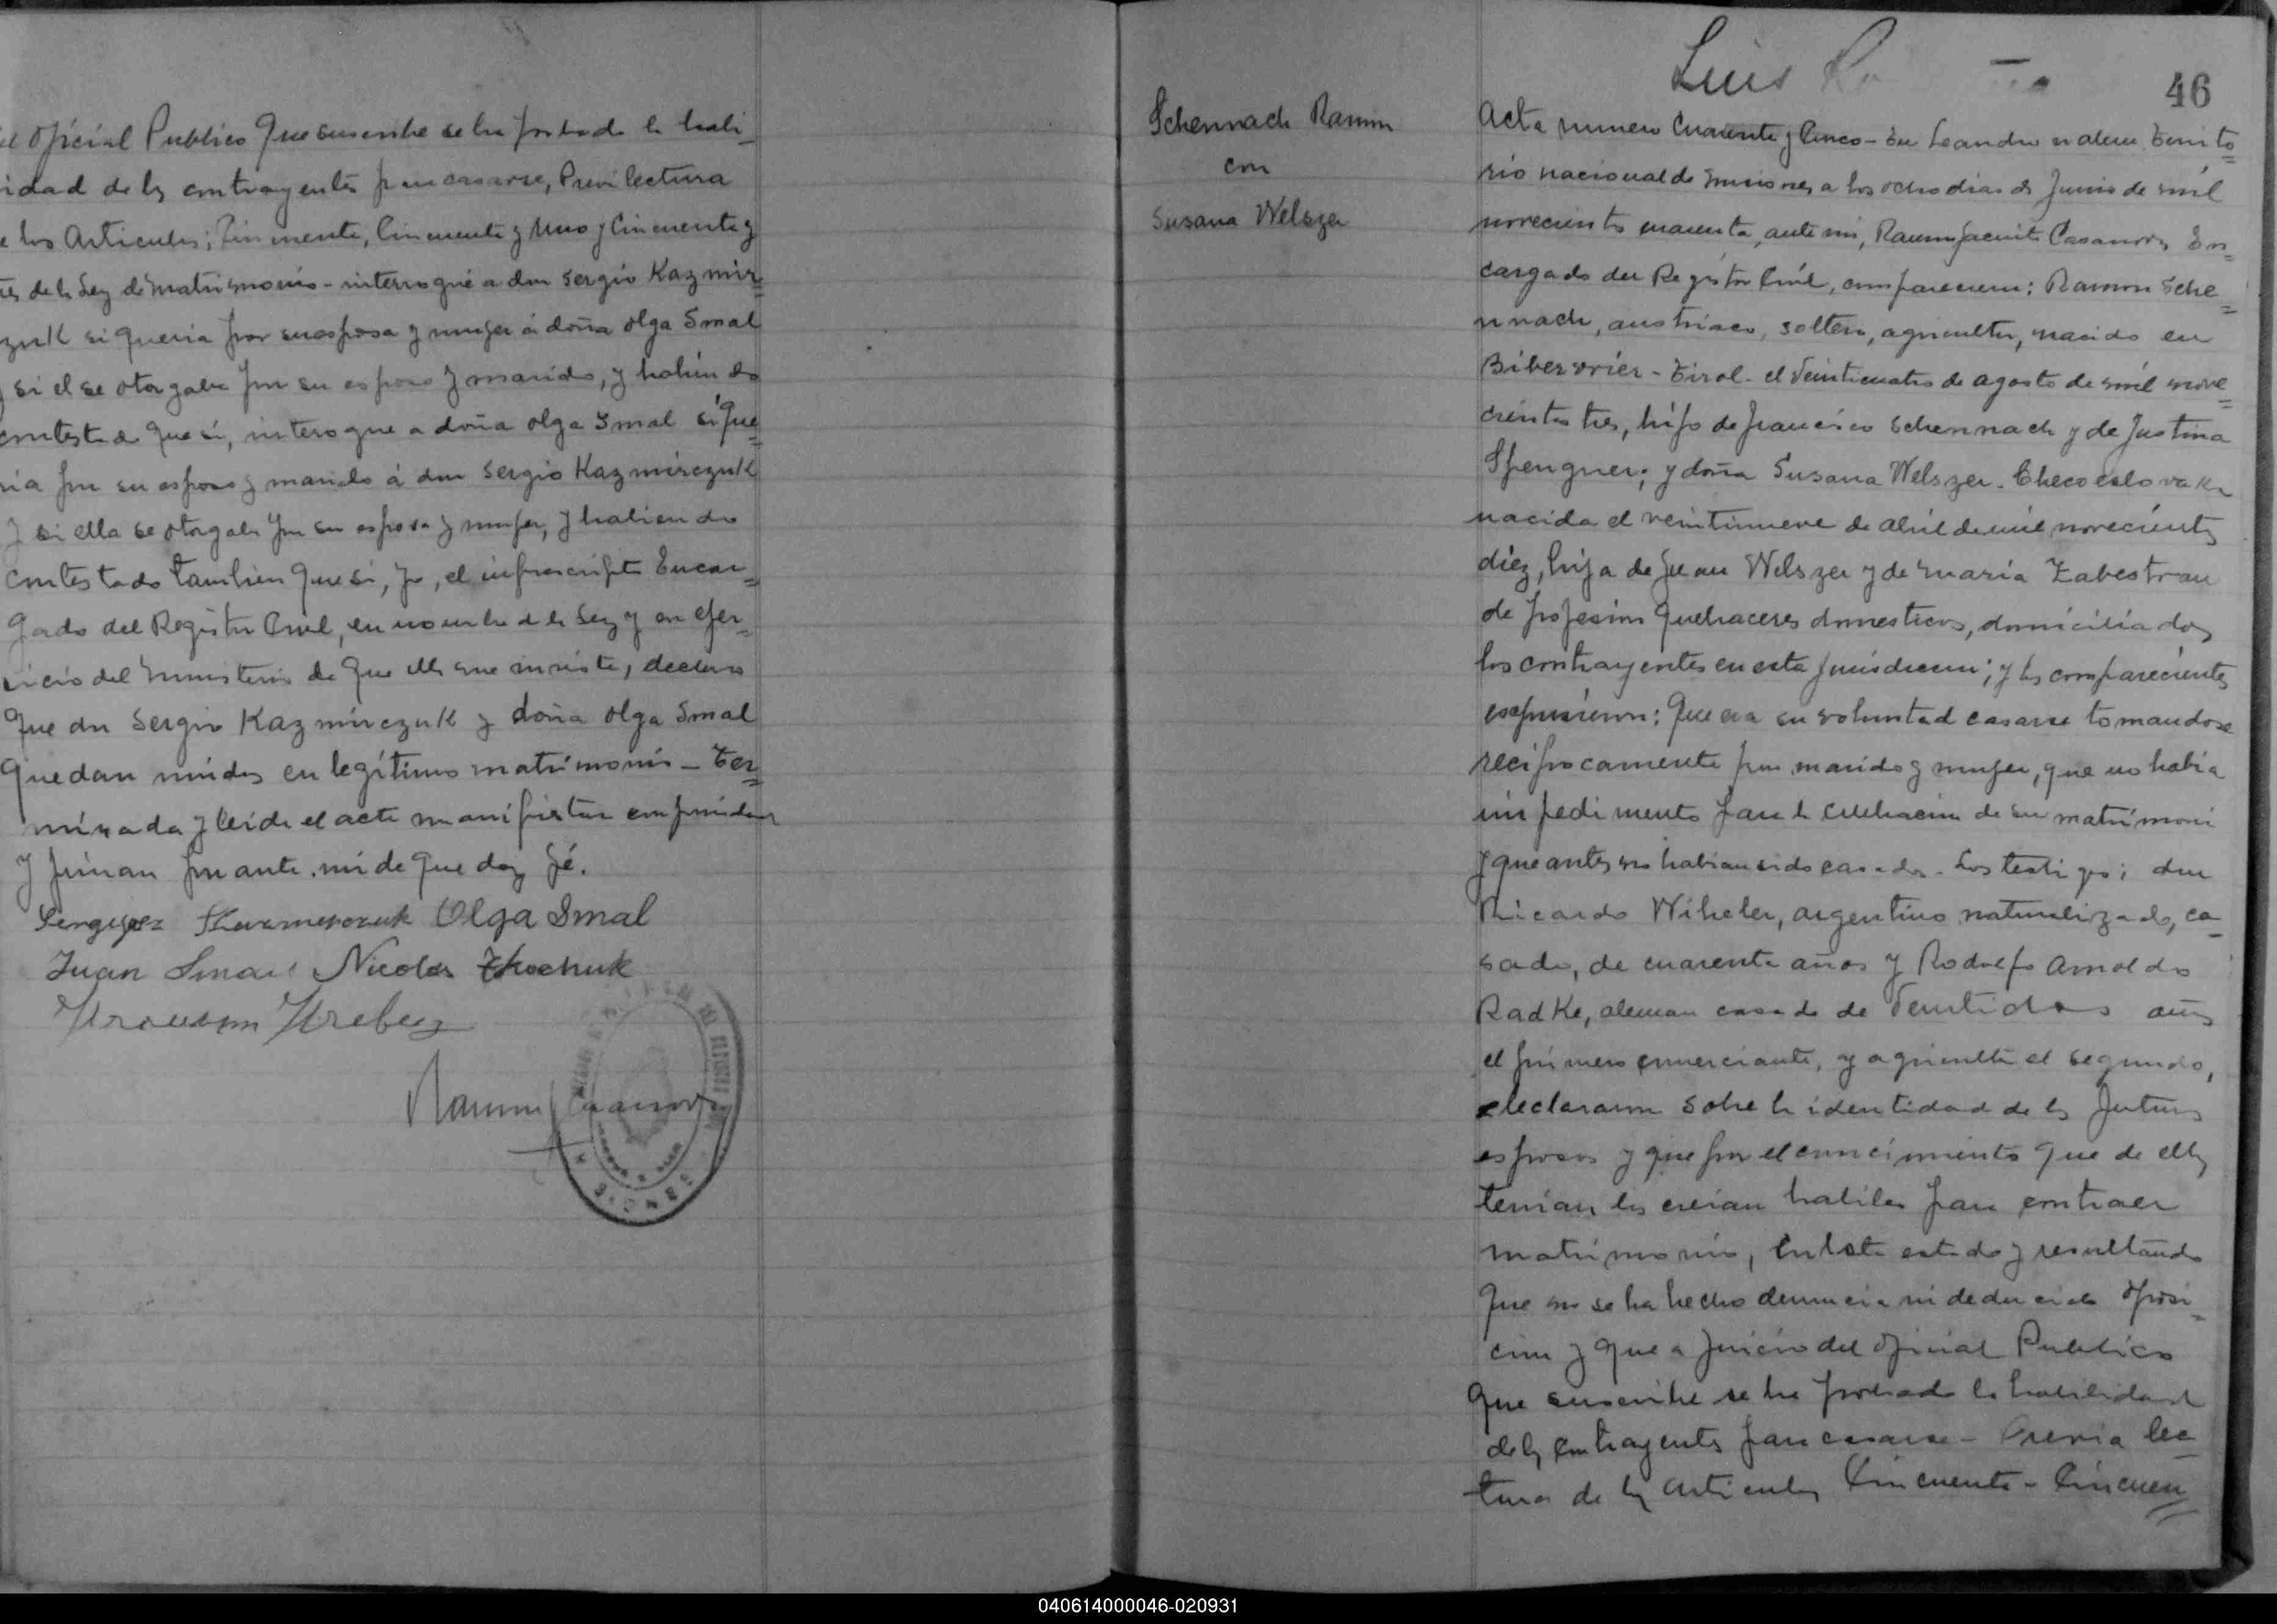 el Oficial Publico que suscribe se ha probado la habi-
lidad de los contrayentes para casarse, Previ lectura
de los Articulos; Cincuenta, Cincuenta y Uno y Cincuenta y
tres de la Ley de Matrimonio - interrogué a don Sergio Kazmir=
zuk si queria por su esposa y mujer á doña Olga Smal
y si el se otorgaba por su esposo y marido, y habiendo
contestado que si, interogue a doña Olga Smal si que=
ria por su esposo y marido á don Sergio Kazmirczuk
y si ella se otorgaba por su esposa y mujer, y habiendo
contestado tambien que si, yo, el infrascripto Encar=
gado del Registro Civil, en nombre de la Ley y en ejer=
cicio del Ministerio de que ella me inviste, declaro
que don Sergio Kazmirczuk y doña Olga Smal
quedan unidos en legítimo matrimonio - Ter=
minada y leida el acta manifiestan conformidad
y firman por ante mi de que doy fé.
Olga Smal
Juan Smal Nicolas
Ramon Casanova
Luis
46
Schennach Ramon
con
Susana Welszer
Acta numero Cuarenta y Cinco - En Leandro N alem Territo=
rio nacional de Misiones, a los ocho dias de Junio de mil
novecientos cuarenta, ante mi, Ramon Jacinto Casanova, En=
cargado del Registro Civil, comparecieron: Ramon Sche=
nnach, austriaco, soltero, agricultor, nacido en
Biberorier - Tirol - el veinticuatro de agosto de mil nove=
cientos tres, hijo de Francisco Schennach y de Justina
Spengner; y doña Susana Welszer. Checoeslovaka
nacida el veintinueve de abril de mil novecientos
diez, hija de Juan Welszer y de Maria Zabestran
de profesion quehaceres domesticos, domiciliados
los contrayentes en esta jurisdiccion; y los comparecientes
expusieron: Que era su voluntad casarse tomandose
reciprocamente por marido y mujer, que no habia
impedimento para la celebracion de su matrimonio
y que antes no habian sido casados. Los testigos; don
Ricardo Wiheler, argentino naturalizado, ca-
sado, de cuarenta años y Rodolfo Arnoldo
Radke, aleman casado de Veintidos años
el primero comerciante, y agricultor el segundo,
declararon sobre la identidad de los futuros
esposos y que por el conocimiento que de ellos
tenian los creian habiles para contraer
matrimonio, En este estado y resultando
que no se ha hecho denuncia ni deducido oposi-
cion y que a juicio del Oficial Publico
que suscribe se ha probado la habilidad
de los contrayentes para casarse - Previa lec
tura de los articulos Cincuenta - Cincuen=
040614000046-020931